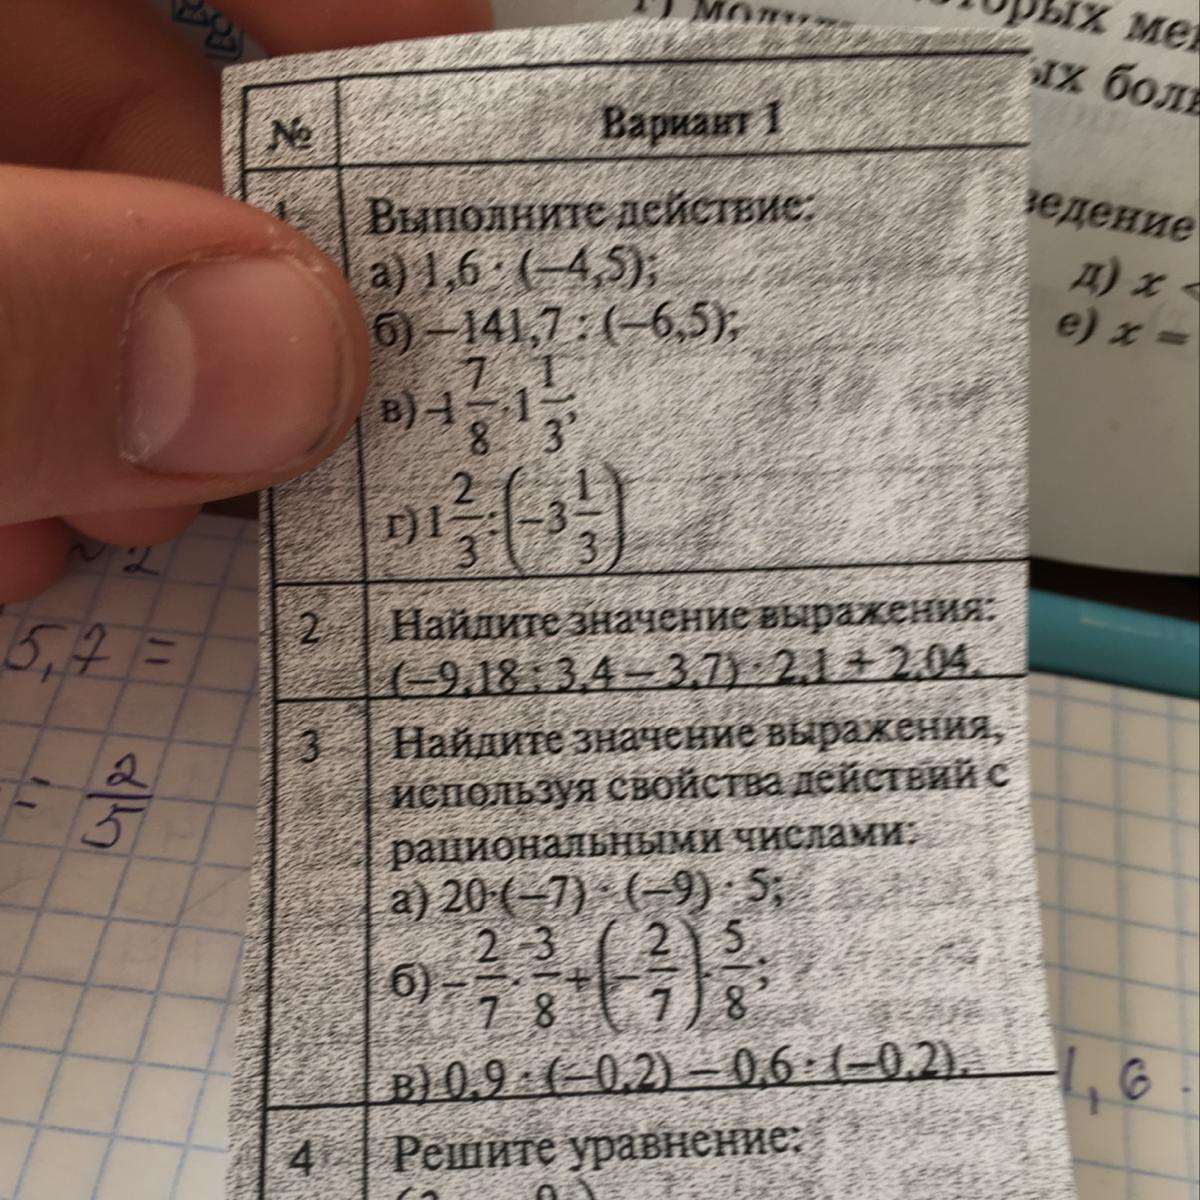 № Вариант 1
Выполните действие:
а) 1,6 · (–4,5);
б) –141,7 : (–6,5);
в) -1 7/8 · 1 1/3;
г) 1 2/3 : (–3 1/3)
2 Найдите значение выражения:
(–9,18 : 3,4 – 3,7) · 2,1 + 2,04.
3 Найдите значение выражения,
используя свойства действий с
рациональными числами:
а) 20·(–7) · (–9) · 5;
б) – 2/7 · 3/8 + (– 2/7) · 5/8;
в) 0,9 · (–0,2) – 0,6 · (–0,2).
4 Решите уравнение:
ых боль
ведение
д) x <
е) x =
2
5,7 =
= 2/5
1,6 ·